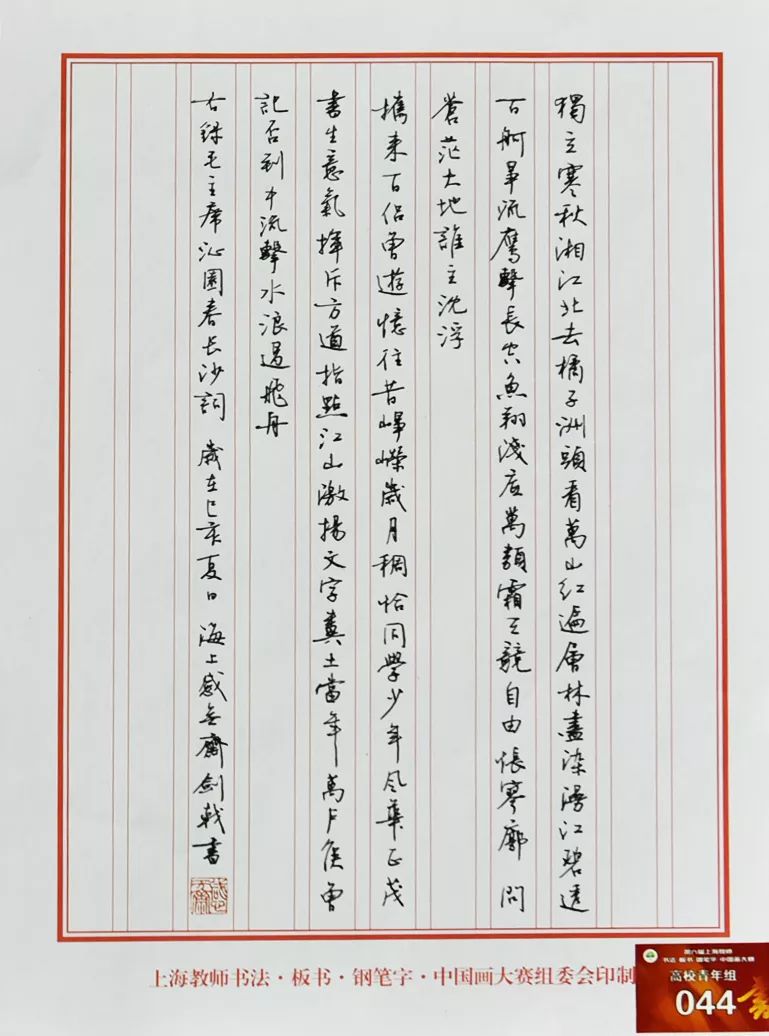 獨立寒秋湘江北去橘子洲頭看萬山紅遍層林盡染漫江碧透
百舸爭流鷹擊長空魚翔淺底萬類霜天競自由悵寥廓問
蒼茫大地誰主沈浮
攜來百侶曾遊憶往昔崢嶸歲月稠恰同學少年風華正茂
書生意氣揮斥方遒指點江山激揚文字糞土當年萬戶侯曾
記否到中流擊水浪遏飛舟
右録毛主席沁園春長沙詞 歲在己亥夏日 海上感無齋劍戟書
上海教师书法·板书·钢笔字·中国画大赛组委会印制
第六届上海教师
书法 板书 钢笔字 中国画大赛
高校青年组
044